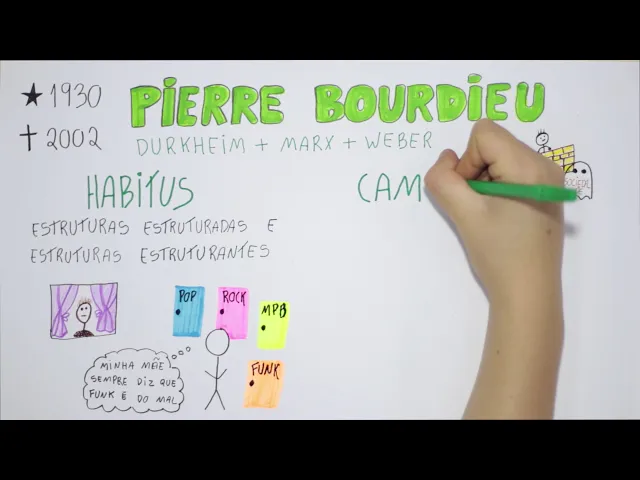 ★ 1930
PIERRE BOURDIEU
✝ 2002
DURKHEIM + MARX + WEBER
HABITUS
CAM
ESTRUTURAS ESTRUTURADAS E
ESTRUTURAS ESTRUTURANTES
POP
ROCK
MPB
FUNK
MINHA MÃE
SEMPRE DIZ QUE
FUNK É DO MAL